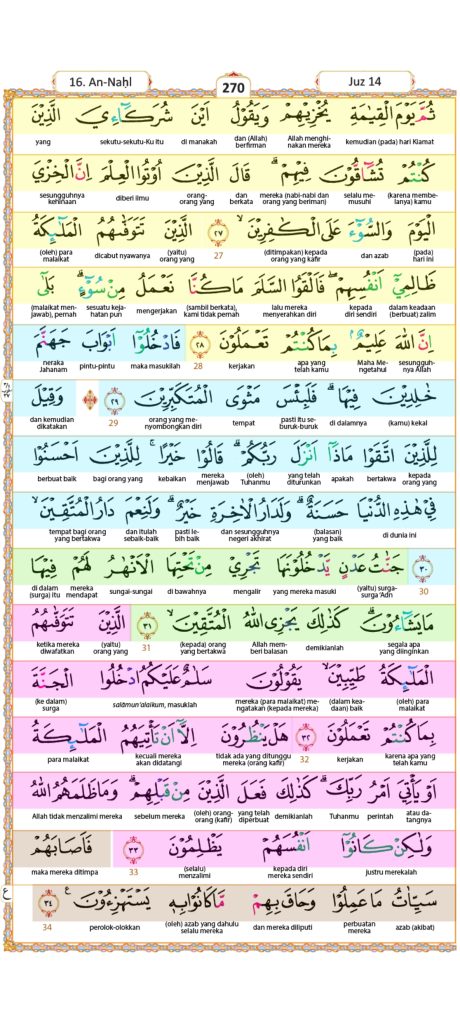 16. An-Naḥl 270 Juz 14
ثُمَّ يَوْمَ الْقِيٰمَةِ يُخْزِيْهِمْ وَيَقُوْلُ اَيْنَ شُرَكَاۤءِيَ الَّذِيْنَ
kemudian (pada) hari Kiamat Allah menghi-nakan mereka dan (Allah) berfirman di manakah sekutu-sekutu-Ku itu yang
كُنْتُمْ تُشَاۤقُّوْنَ فِيْهِمْ ۗ قَالَ الَّذِيْنَ اُوْتُوا الْعِلْمَ اِنَّ الْخِزْيَ
(karena membe-lanya) kamu selalu me-musuhi mereka (nabi-nabi dan orang yang beriman) dan berkata orang-orang yang diberi ilmu sesungguhnya kehinaan
الْيَوْمَ وَالسُّوْۤءَ عَلَى الْكٰفِرِيْنَۙ ٢٧ الَّذِيْنَ تَتَوَفّٰىهُمُ الْمَلٰۤىِٕكَةُ
(pada) hari ini dan azab (ditimpakan) kepada orang yang kafir 27 (yaitu) orang yang dicabut nyawanya (oleh) para malaikat
ظَالِمِيْٓ اَنْفُسِهِمْ ۖ فَاَلْقَوُا السَّلَمَ مَا كُنَّا نَعْمَلُ مِنْ سُوْۤءٍ ۗ بَلٰىٓ
dalam keadaan (berbuat) zalim kepada diri sendiri lalu mereka menyerahkan diri (sambil berkata), kami tidak pernah mengerjakan sesuatu keja-hatan pun (malaikat men-jawab), pernah
اِنَّ اللّٰهَ عَلِيْمٌۢ بِمَا كُنْتُمْ تَعْمَلُوْنَ ٢٨ فَادْخُلُوْٓا اَبْوَابَ جَهَنَّمَ
sesungguh-nya Allah Maha Me-ngetahui apa yang telah kamu kerjakan 28 maka masukilah pintu-pintu neraka Jahanam
خٰلِدِيْنَ فِيْهَا ۗ فَلَبِئْسَ مَثْوَى الْمُتَكَبِّرِيْنَ ٢٩ ۞ وَقِيْلَ
(kamu) kekal di dalamnya pasti itu se-buruk-buruk tempat orang yang me-nyombongkan diri 29 dan kemudian dikatakan
لِلَّذِيْنَ اتَّقَوْا مَاذَآ اَنْزَلَ رَبُّكُمْ ۗ قَالُوْا خَيْرًا ۚ لِلَّذِيْنَ اَحْسَنُوْا
kepada orang yang bertakwa apakah yang telah diturunkan (oleh) Tuhanmu mereka menjawab kebaikan bagi orang yang berbuat baik
فِيْ هٰذِهِ الدُّنْيَا حَسَنَةٌ ۗ وَلَدَارُ الْاٰخِرَةِ خَيْرٌ ۗ وَلَنِعْمَ دَارُ الْمُتَّقِيْنَۙ
di dunia ini (balasan) yang baik dan sesungguhnya negeri akhirat pasti le-bih baik dan itulah sebaik-baik tempat bagi orang yang bertakwa
٣٠ جَنّٰتُ عَدْنٍ يَّدْخُلُوْنَهَا تَجْرِيْ مِنْ تَحْتِهَا الْاَنْهٰرُ لَهُمْ فِيْهَا
30 (yaitu) surga-surga ‘Adn yang mereka masuki mengalir di bawahnya sungai-sungai mereka mendapat di dalam (surga) itu
مَا يَشَاۤءُوْنَ ۗ كَذٰلِكَ يَجْزِى اللّٰهُ الْمُتَّقِيْنَۙ ٣١ الَّذِيْنَ تَتَوَفّٰىهُمُ
segala apa yang diinginkan demikianlah Allah mem-beri balasan (kepada) orang yang bertakwa 31 (yaitu) orang yang ketika mereka diwafatkan
الْمَلٰۤىِٕكَةُ طَيِّبِيْنَ ۙ يَقُوْلُوْنَ سَلٰمٌ عَلَيْكُمُ ادْخُلُوا الْجَنَّةَ
(oleh) para malaikat (dalam kea-daan) baik mereka (para malaikat) me-ngatakan (kepada mereka) salāmun‘alaikum, masuklah (ke dalam) surga
بِمَا كُنْتُمْ تَعْمَلُوْنَ ٣٢ هَلْ يَنْظُرُوْنَ اِلَّآ اَنْ تَأْتِيَهُمُ الْمَلٰۤىِٕكَةُ
karena apa yang telah kamu kerjakan 32 tidak ada yang ditunggu mereka (orang kafir) kecuali mereka akan didatangi para malaikat
اَوْ يَأْتِيَ اَمْرُ رَبِّكَ ۗ كَذٰلِكَ فَعَلَ الَّذِيْنَ مِنْ قَبْلِهِمْ ۗ وَمَا ظَلَمَهُمُ اللّٰهُ
atau da-tangnya perintah Tuhanmu demikianlah yang telah diperbuat (oleh) orang-orang (kafir) sebelum mereka Allah tidak menzalimi mereka
وَلٰكِنْ كَانُوْٓا اَنْفُسَهُمْ يَظْلِمُوْنَ ٣٣ فَاَصَابَهُمْ
justru merekalah kepada diri mereka sendiri (selalu) menzalimi 33 maka mereka ditimpa
سَيِّاٰتُ مَا عَمِلُوْا وَحَاقَ بِهِمْ مَّا كَانُوْا بِهٖ يَسْتَهْزِءُوْنَ ࣖ ٣٤
azab (akibat) perbuatan mereka dan mereka diliputi (oleh) azab yang dahulu selalu mereka perolok-olokkan 34
ع